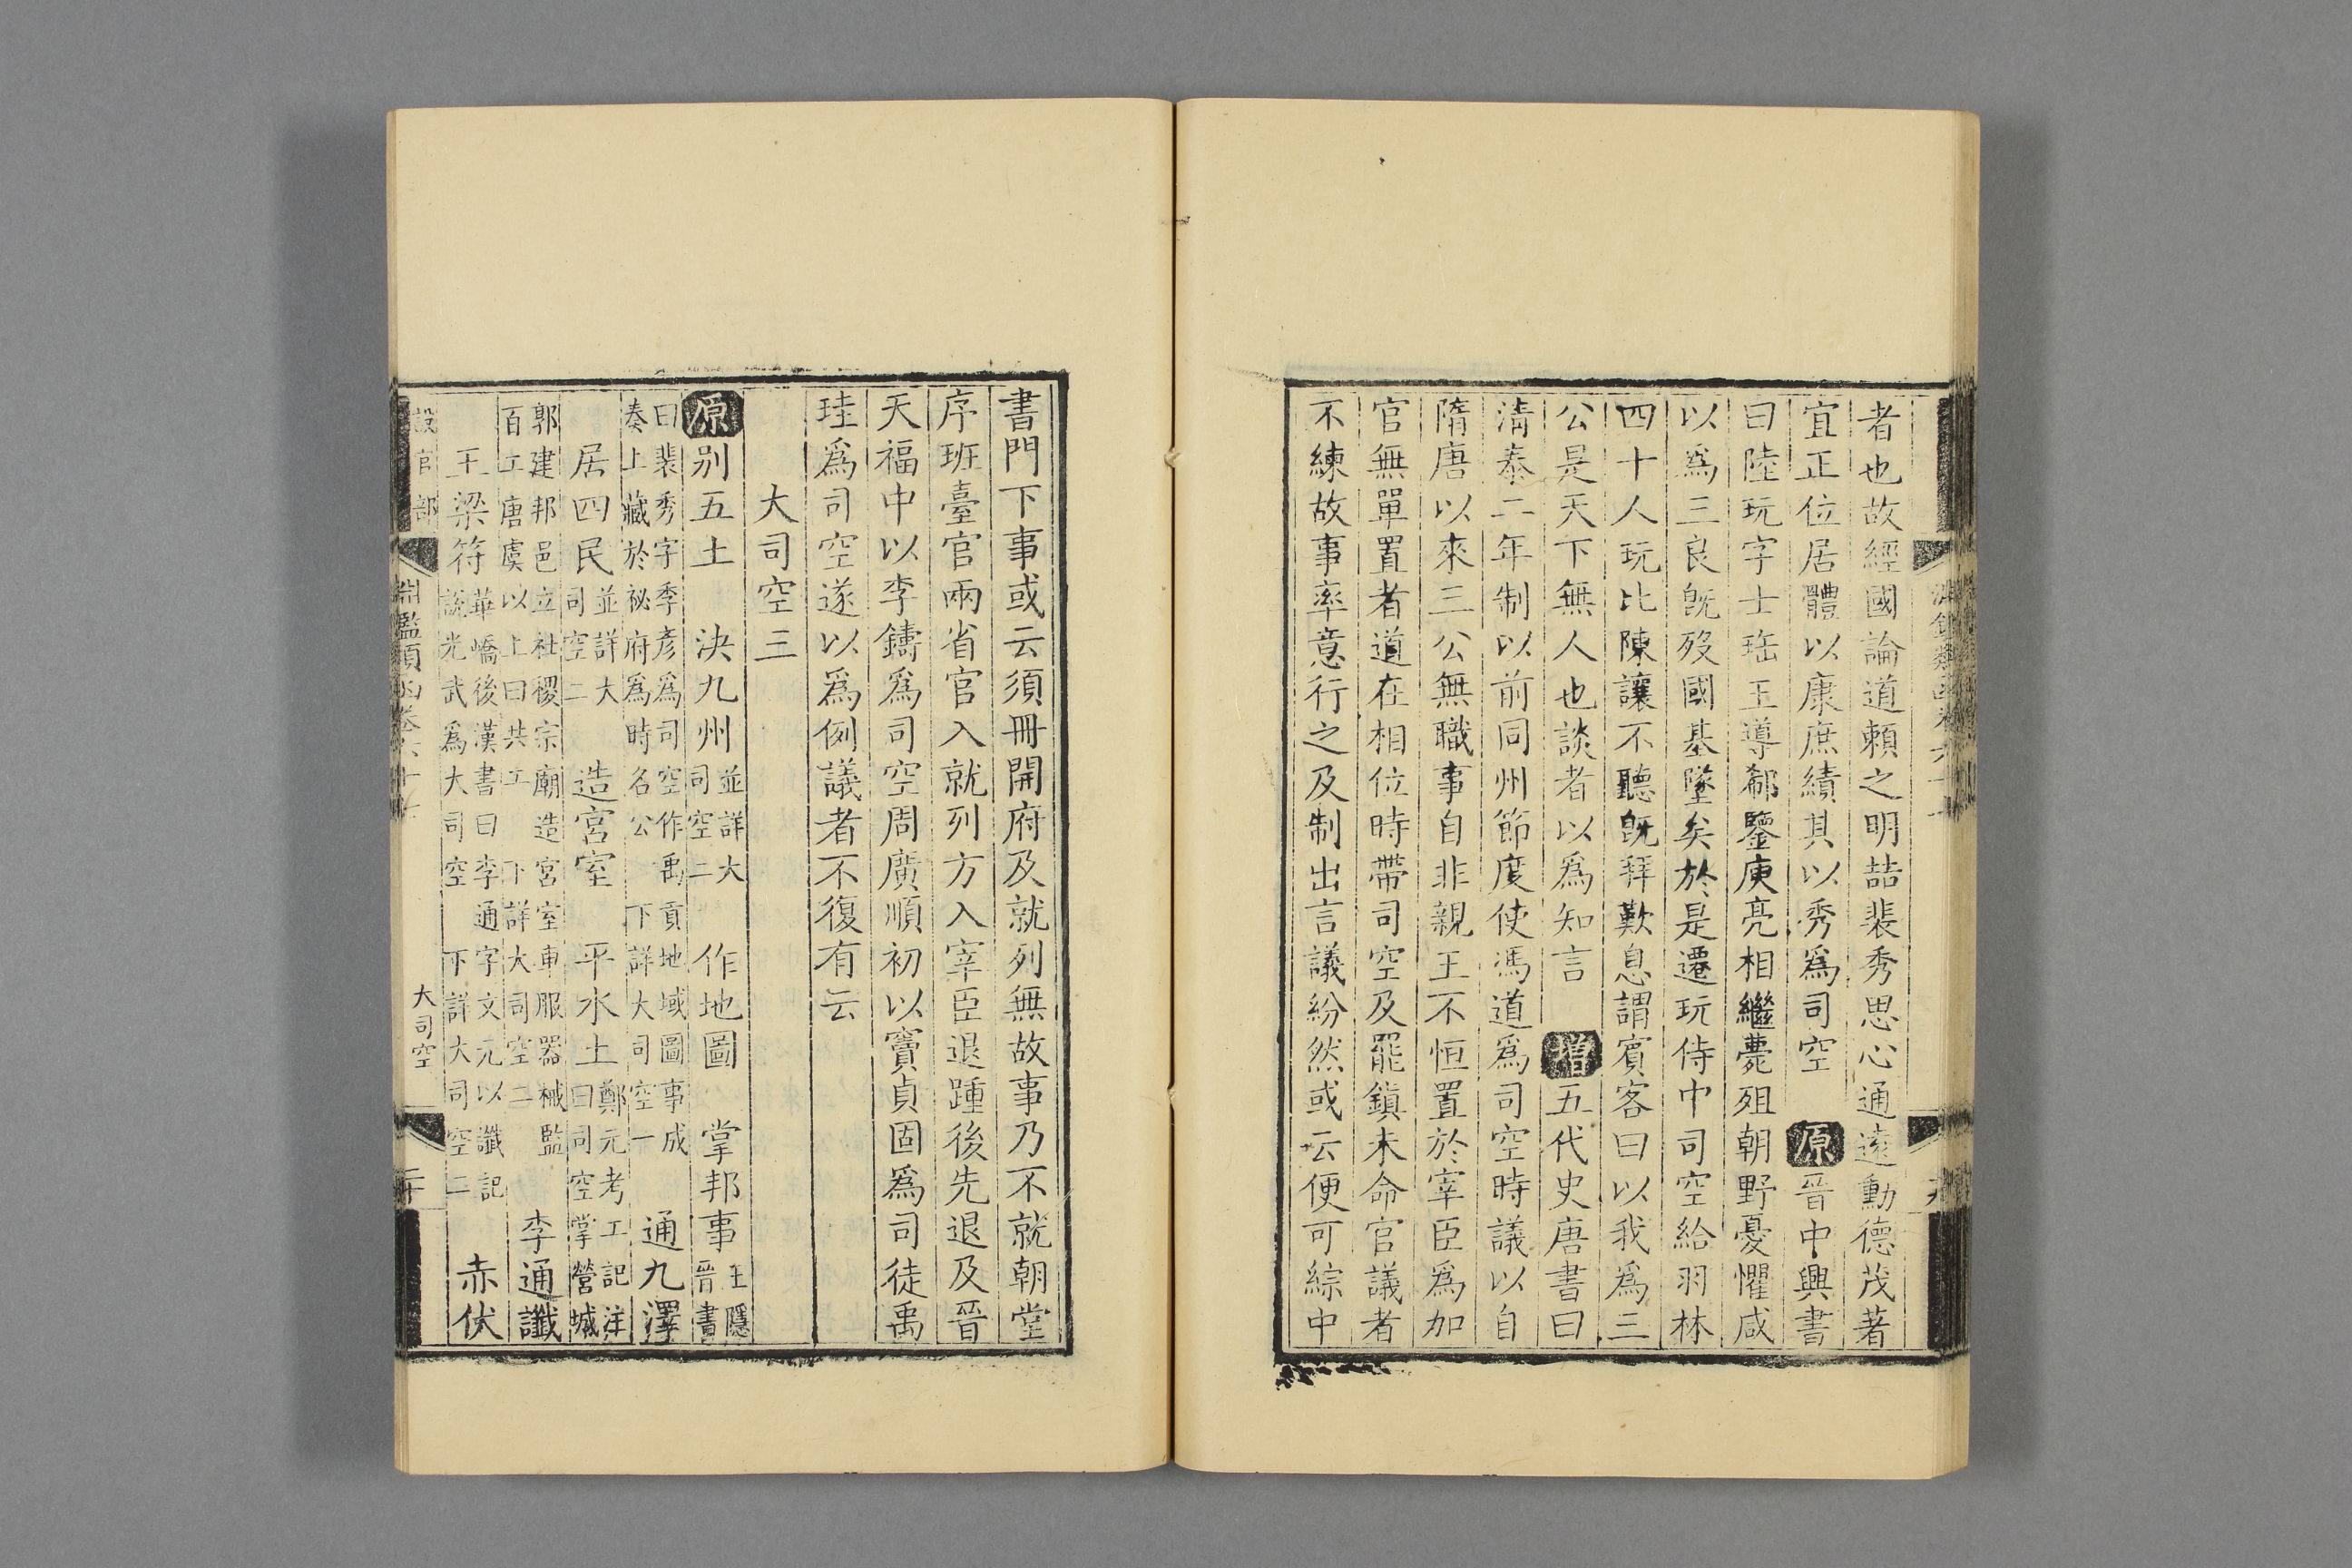 者也故經國論道賴之明喆裴秀思心通遠勳德茂著
宜正位居體以康庶績其以秀爲司空 原晉中興書
曰陸玩字士瑶王導郗鑒庾亮相繼薨殂朝野憂懼咸
以爲三良旣歿國基墜矣於是遷玩侍中司空給羽林
四十人玩比陳讓不聽旣拜歎息謂賓客曰以我爲三
公是天下無人也談者以爲知言 增五代史唐書曰
淸泰二年制以前同州節度使馮道爲司空時議以自
隋唐以來三公無職事自非親王不恒置於宰臣爲加
官無單置者道在相位時帶司空及罷鎭未命官議者
不練故事率意行之及制出言議紛然或云便可綜中
書門下事或云須冊開府及就列無故事乃不就朝堂
序班臺官兩省官入就列方入宰臣退踵後先退及晉
天福中以李鏄爲司空周廣順初以竇貞固爲司徒禹
珪爲司空遂以爲例議者不復有云
大司空三
原別五土 決九州並詳大司空二 作地圖 掌邦事王隱晉書
曰裴秀字季彥爲司空作禹貢地域圖事成奏上藏於祕府爲時名公 下詳大司空一 通九澤
居四民並詳大司空二 造宮室 平水土鄭元考工記注曰司空掌營城
郭建邦邑立社稷宗廟造宮室車服器械監百工唐虞以上曰共工 下詳大司空二 李通讖
王梁符華嶠後漢書曰李通字文元以讖記說光武爲大司空 下詳大司空二 赤伏
設官部 淵鑑類函卷六十 大司空 二十